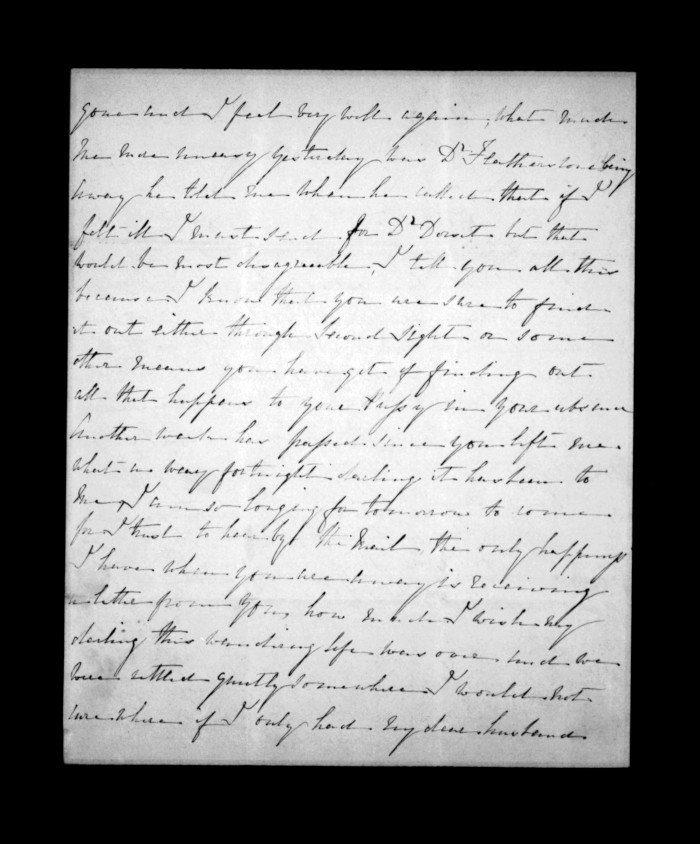 gone and I feel very well again, what made
me more uneasy yesterday was Dr Featherstone being
away he told me when he called that if I
felt ill I must send for Dr Dorset but that
would be most disagreeable, I tell you all this
because I know that you are sure to find
it out either through Second Sight or some
other means you have got of finding out
all that happens to your Pussy in your absence
Another week has passed since you left me
what a weary fortnight darling it has been to
me, I am so longing for tomorrow to come
for I trust to hear by the Mail, the only happiness
I have when you are away is receiving
a letter from you, how much I wish my
darling this wandering life was over and we
were settled quietly somewhere I would not
care where if I only had my dear husband